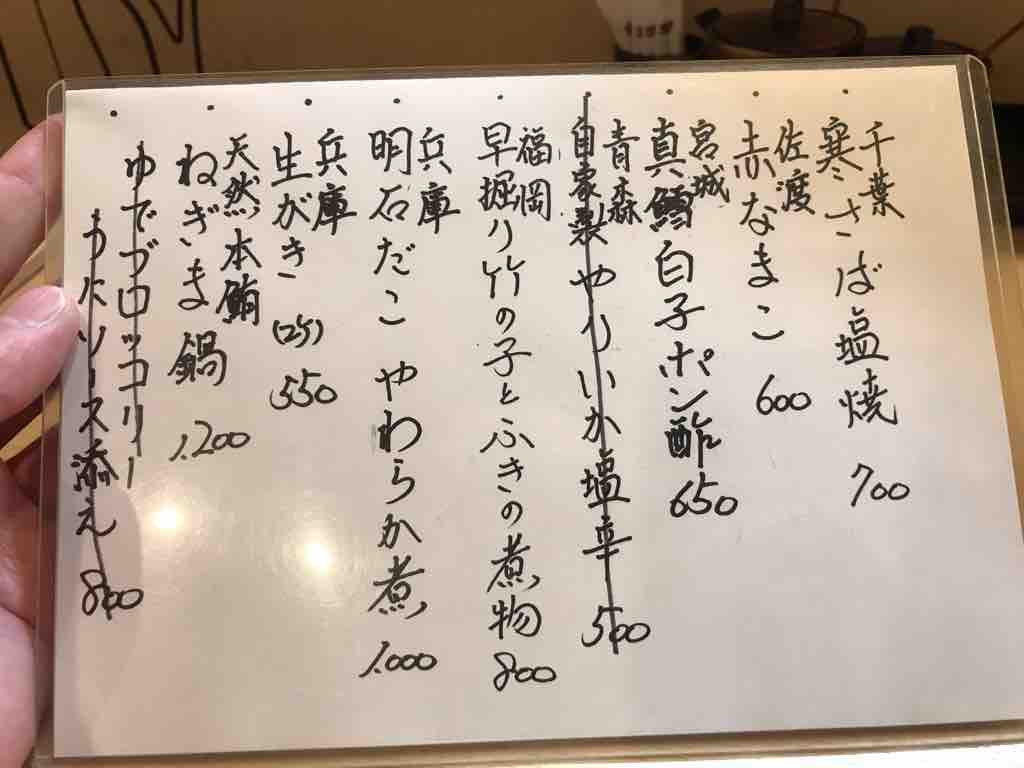 千葉
寒さば塩焼 700
佐渡
赤なまこ 600
宮城
真鱈白子ポン酢 650
青森
自家製やりいか塩辛 500
福岡
早堀り竹の子とふきの煮物 800
兵庫
明石だこ やわらか煮 1.000
兵庫
生がき(2ケ) 550
天然本鮪
ねぎま鍋 1.200
ゆでブロッコリー
うにソース添え 800